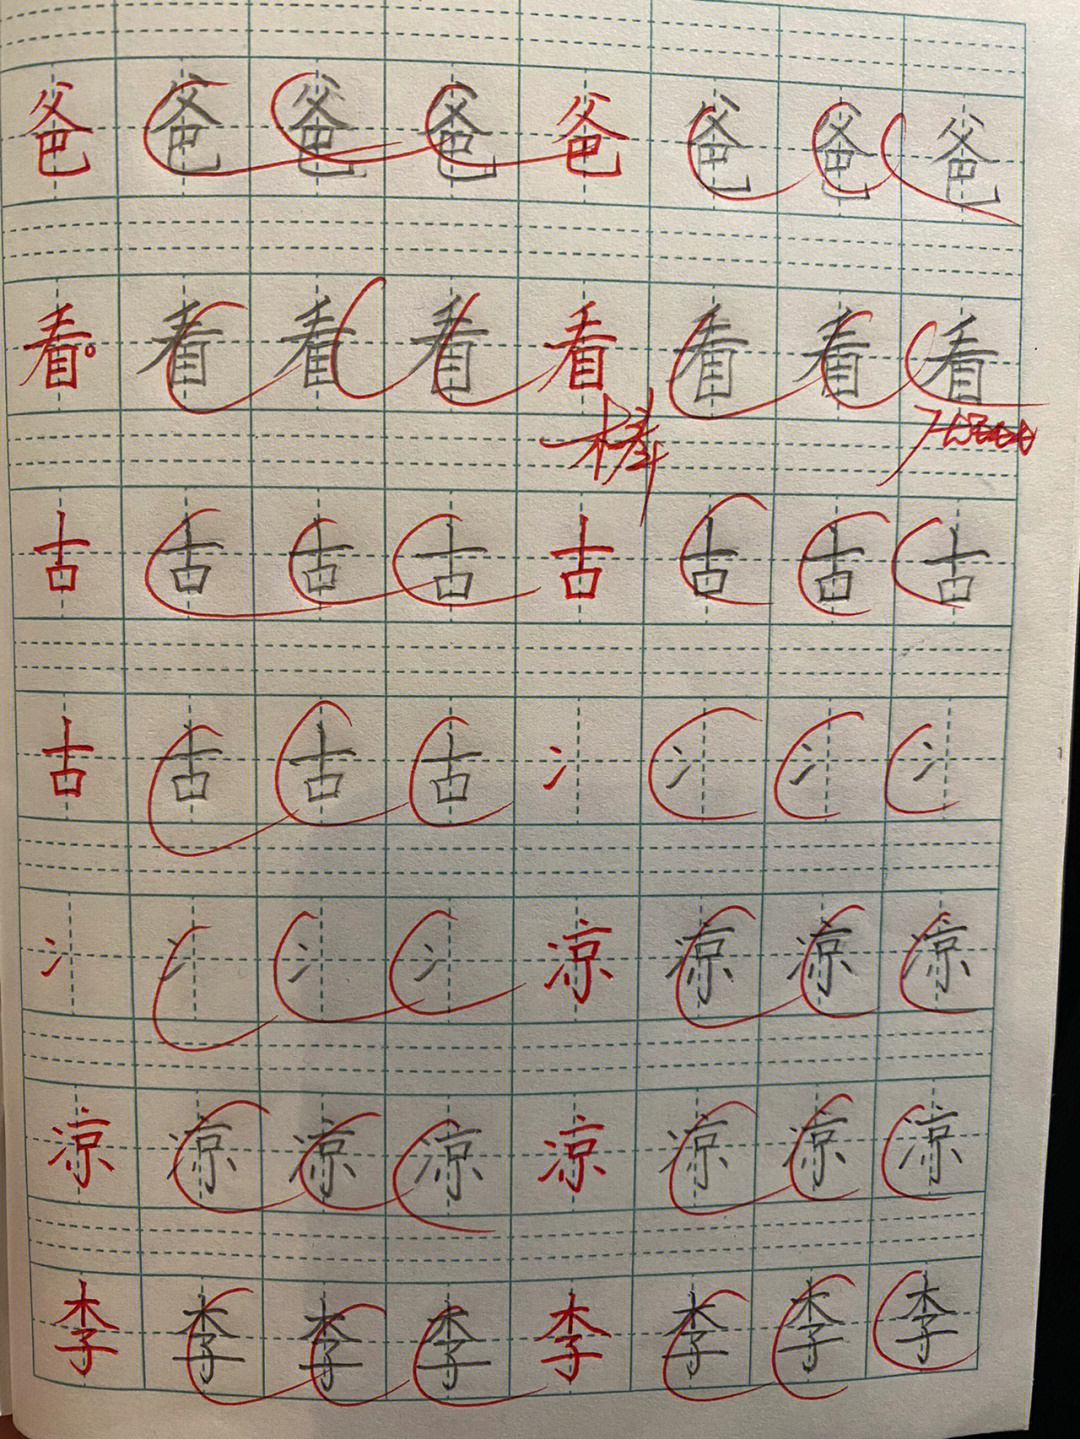 爸 爸 爸 爸 爸 爸 爸 爸
看 看 看 看 看 看 看 看
棒
古 古 古 古 古 古 古 古
古 古 古 古 冫 冫 冫 冫
冫 冫 冫 冫 凉 凉 凉 凉
凉 凉 凉 凉 凉 凉 凉 凉
李 李 李 李 李 李 李 李